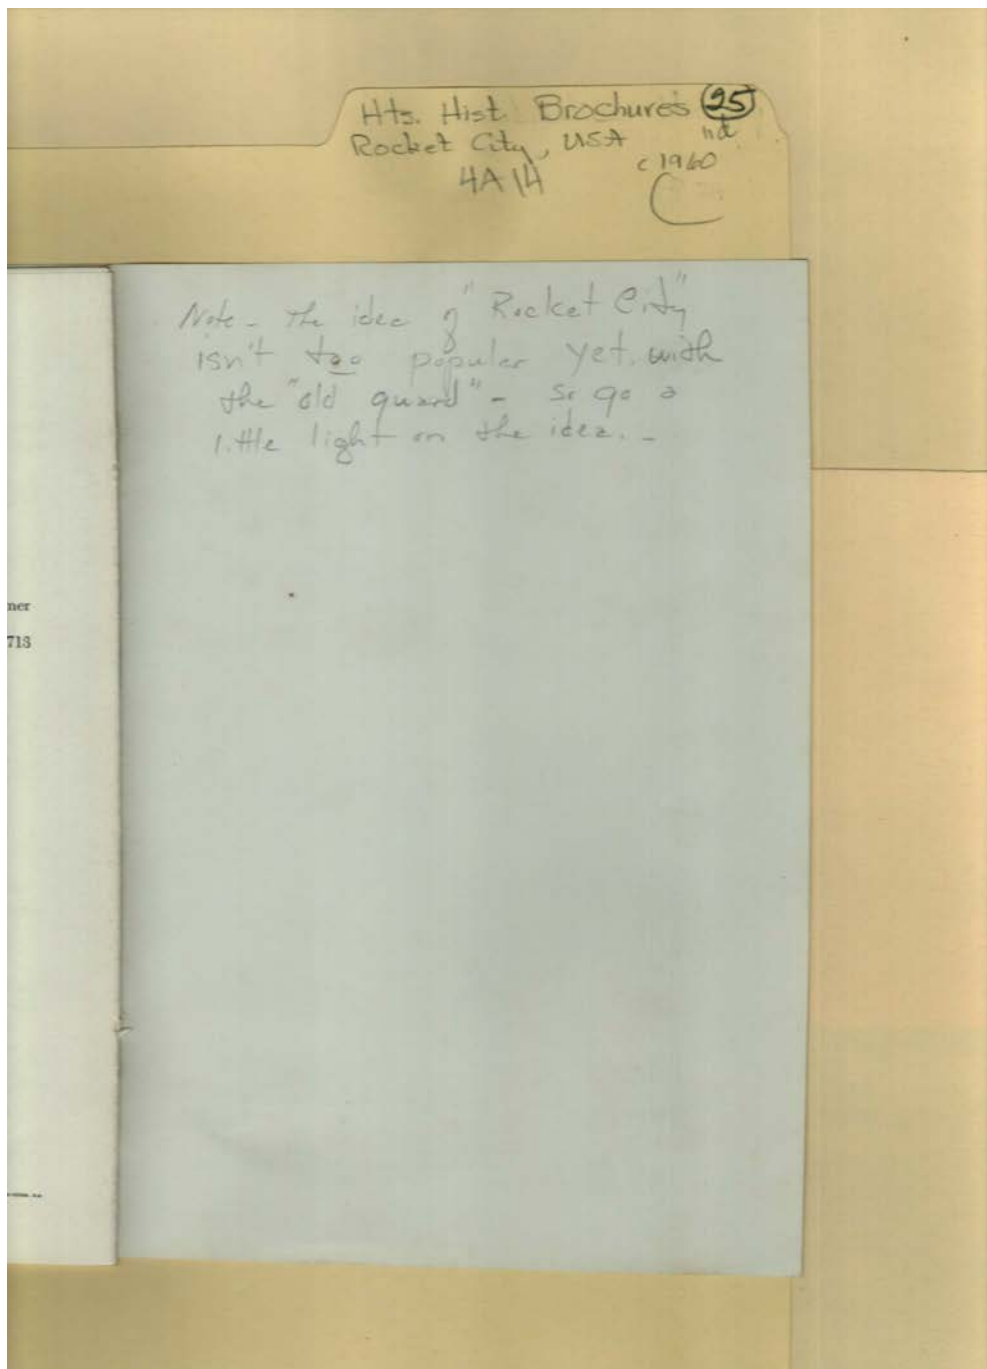 Hts. Hist. Brochures 25
Rocket City, USA nd
c 1960
4A14
Note - The idea of "Rocket City"
isn't too popular yet. with
the "old guard" - so go a
little light on the idea. -
ner
713